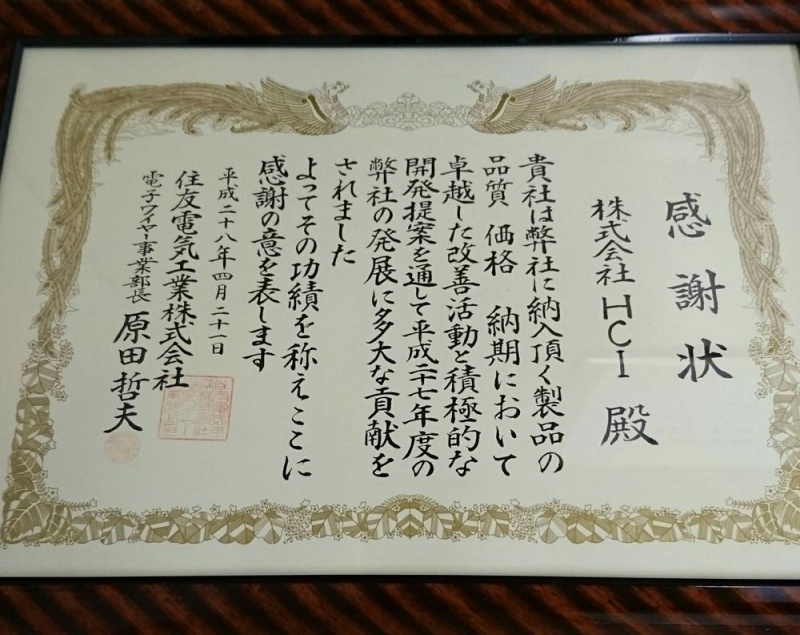 感謝状
株式会社 HCI 殿
貴社は弊社に納入頂く製品の
品質 価格 納期において
卓越した改善活動と積極的な
開発提案を通して平成二十七年度の
弊社の発展に多大な貢献を
されました
よってその功績を称えここに
感謝の意を表します
平成二十八年四月二十一日
住友電気工業株式会社
電子ワイヤー事業部長 原田哲夫